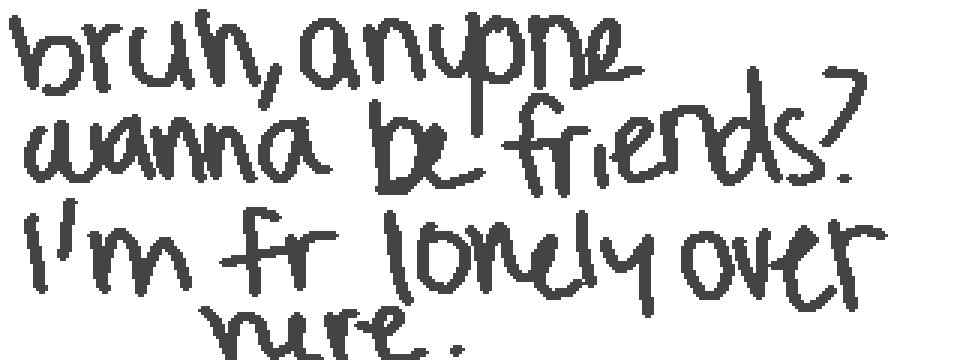 bruh, anyone
wanna be friends?
I'm fr lonely over
here.